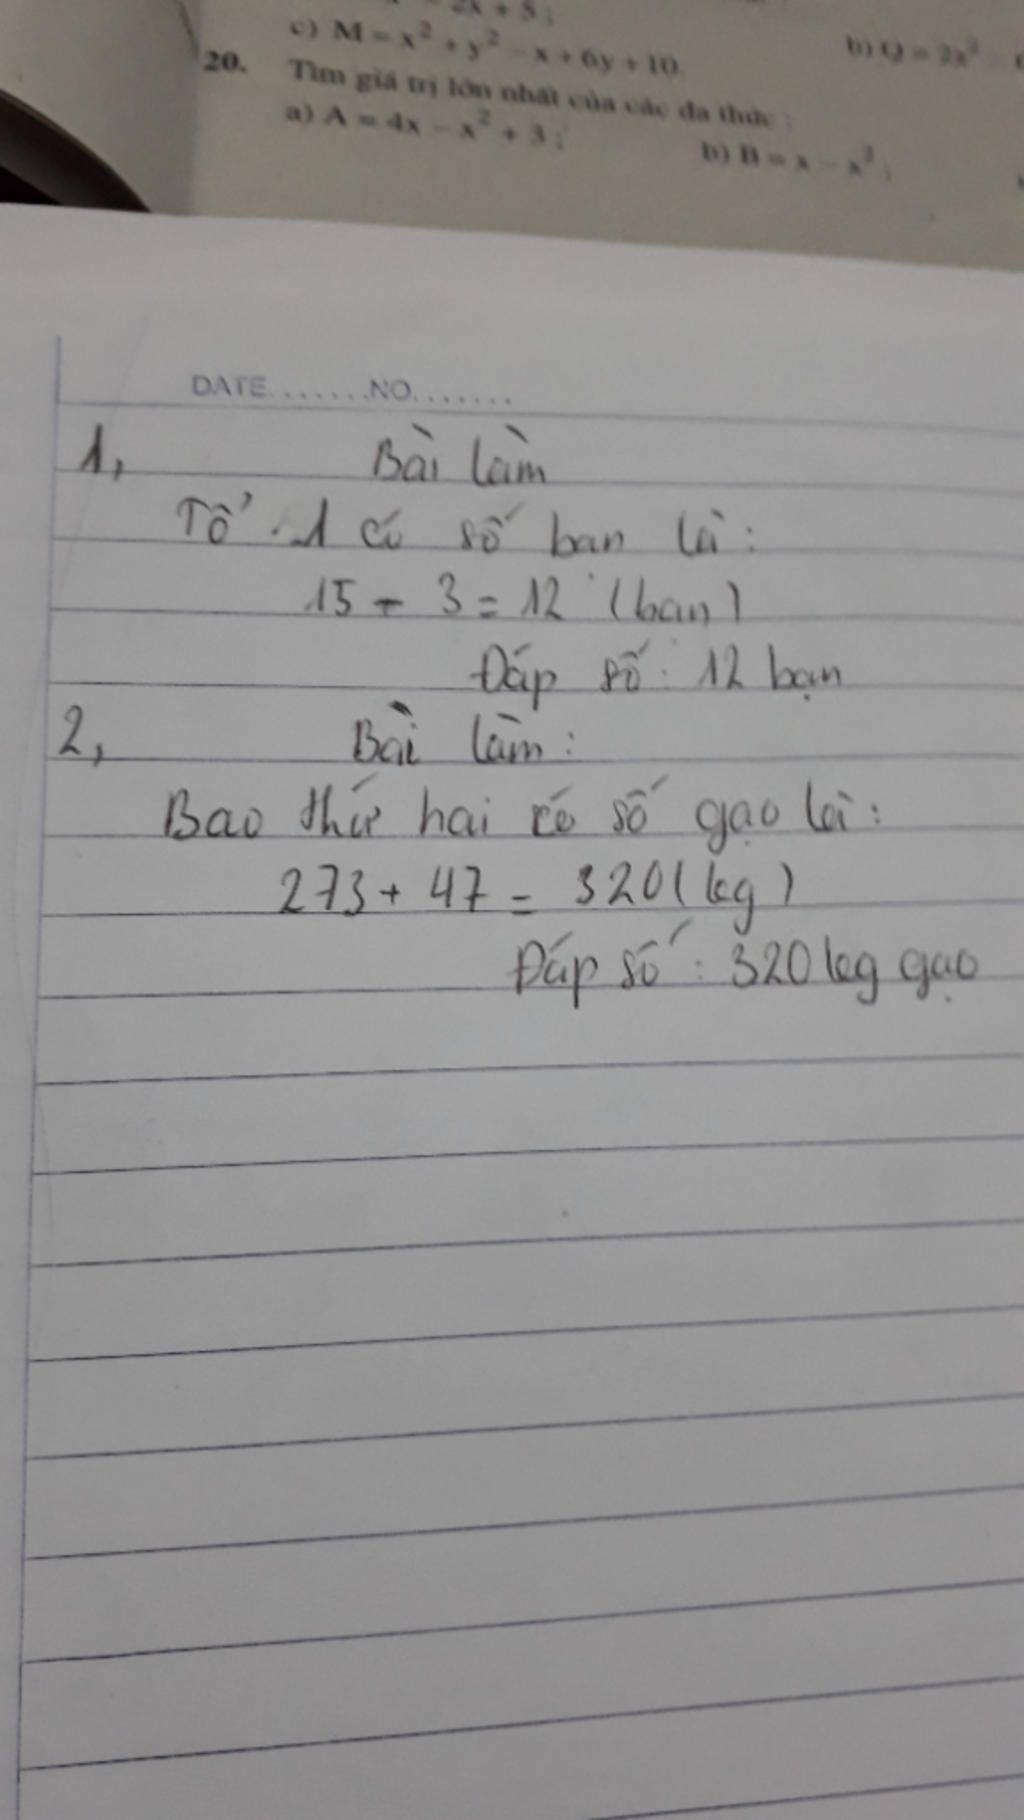 2x + 5 ;
c) M = x² + y² - x + 6y + 10
b) Q = 2x²
20. Tìm giá trị lớn nhất của các đa thức :
a) A = 4x - x² + 3 ;
b) B = x - x² ;
DATE.......NO.......
1, Bài làm
Tổ 1 có số bạn là:
15 - 3 = 12 (bạn)
Đáp số: 12 bạn
2, Bài làm:
Bao thứ hai có số gạo là:
273 + 47 = 320 (kg)
Đáp số: 320 kg gạo